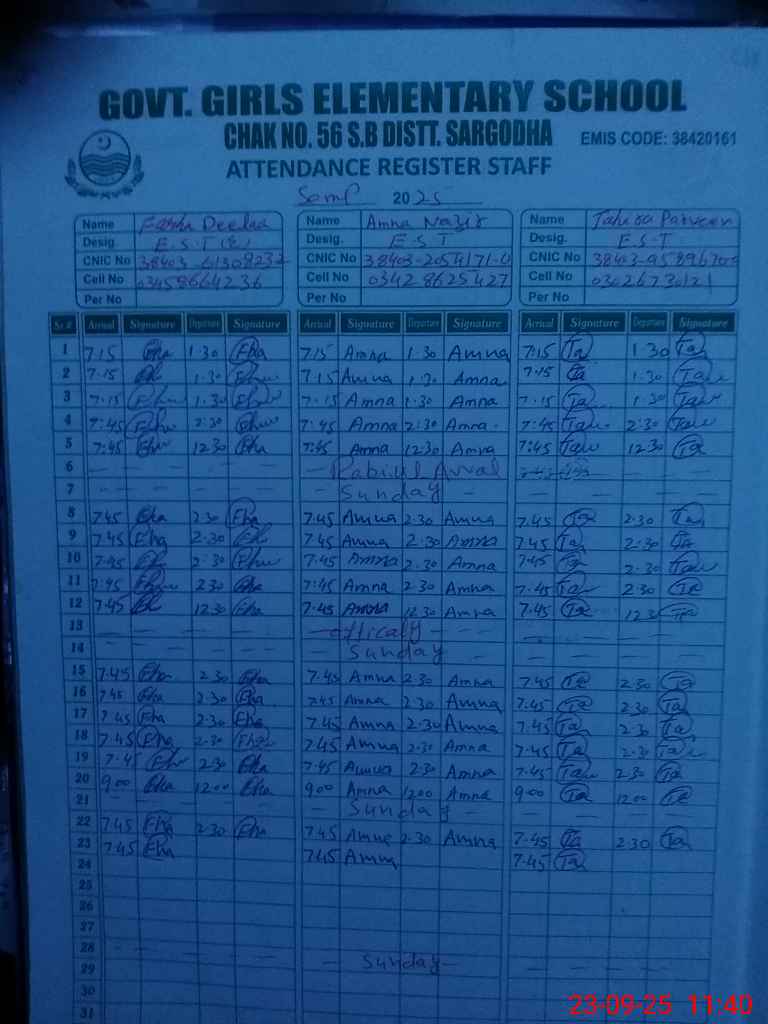 GOVT. GIRLS ELEMENTARY SCHOOL
CHAK NO. 56 S.B DISTT. SARGODHA EMIS CODE: 38420161
ATTENDANCE REGISTER STAFF
2025
Name Name Amna Nazir Name Tahira Parveen
Desig. E.S.T(E) Desig. E S T Desig. E.S.T
CNIC No CNIC No 38403-2054171-4 CNIC No
Cell No 03458664236 Cell No 0342 8625427 Cell No 03026730121
Per No Per No Per No
Sr.# Arrival Signature Departure Signature Arrival Signature Departure Signature Arrival Signature Departure Signature
1 7:15 Eha 1:30 Eha 7:15 Amna 1:30 Amna 7:15 Ta 1:30 Ta
2 7:15 1:30 7:15 Amna 1:30 Amna 7:15 Ta 1:30
3 7:15 1:30 7:15 Amna 1:30 Amna 7:15 Ta 1:30
4 7:45 2:30 7:45 Amna 2:30 Amna 7:45 2:30
5 7:45 12:30 Eha 7:45 Amna 12:30 Amna 7:45 12:30 Ta
6 – – – – – Rabiul Awal
7 – – – – – Sunday – – – – –
8 7.45 Eha 2.30 Eha 7.45 Amna 2.30 Amna 7.45 Ta 2.30 Ta
9 7.45 Eha 2.30 7.45 Amna 2.30 Amna 7.45 Ta 2:30 Ta
10 7.45 2:30 7.45 Amna 2.30 Amna 7.45 Ta 2.30
11 7.45 2.30 Eha 7.45 Amna 2.30 Amna 7.45 Ta 2.30 Ta
12 7.45 12.30 Eha 7.45 Amna 12.30 Amna 7.45 Ta 12.30 Ta
13 – – – – – officaly – – – – – –
14 – – – – – Sunday – – – – –
15 7.45 Eha 2.30 Eha 7.45 Amna 2.30 Amna 7.45 Ta 2.30 Ta
16 7.45 Eha 2.30 Eha 7.45 Amna 2.30 Amna 7.45 Ta 2.30 Ta
17 7.45 Eha 2.30 Eha 7.45 Amna 2.30 Amna 7.45 Ta 2.30 Ta
18 7.45 Eha 2.30 Eha 7.45 Amna 2.30 Amna 7.45 Ta 2.30 Ta
19 7.45 2.30 Eha 7.45 Amna 2.30 Amna 7.45 2.30 Ta
20 9.00 Eha 12.00 Eha 9.00 Amna 12.00 Amna 9.00 Ta 12.00 Ta
21 – – – – – Sunday – – – – –
22 7.45 Eha 2.30 Eha 7.45 Amna 2.30 Amna 7.45 Ta 2.30 Ta
23 7.45 Eha 7.45 Amna 7.45 Ta
24
25
26
27
28 – – – – – Sunday – – – – –
29
30
31
23-09-25 11:40